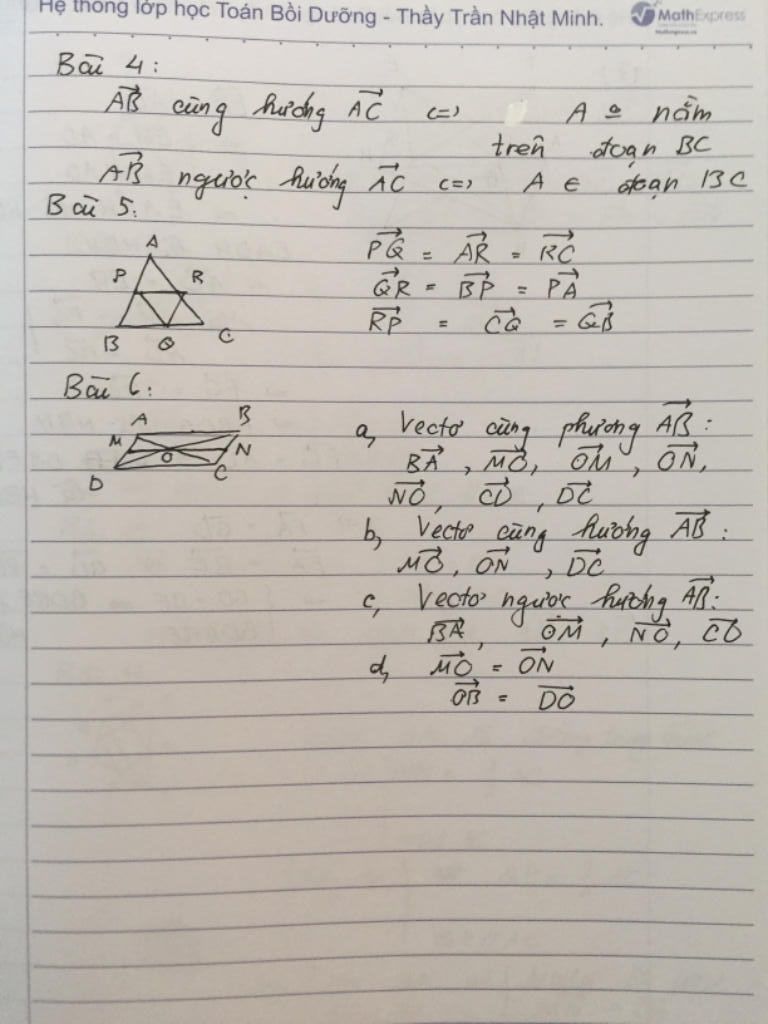 Hệ thống lớp học Toán Bồi Dưỡng - Thầy Trần Nhật Minh.
MathExpress
Bài 4:
AB cùng hướng AC <=> A nằm
trên đoạn BC
AB ngược hướng AC <=> A ∈ đoạn BC
Bài 5:
A
P R
B Q C
PQ = AR = RC
QR = BP = PA
RP = CQ = QB
Bài 6:
A B
M N
O
D C
a, Vectơ cùng phương AB:
BA, MO, OM, ON,
NO, CD, DC
b, Vectơ cùng hướng AB:
MO, ON, DC
c, Vectơ ngược hướng AB:
BA, OM, NO, CD
d, MO = ON
OB = DO